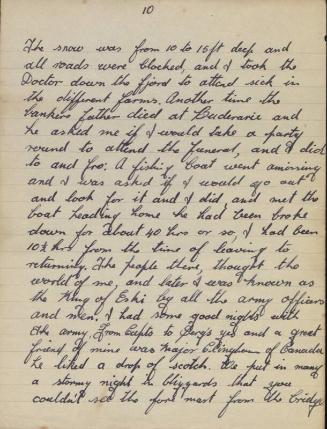 10
The snow was from 10 to 15 ft deep and
all roads were blocked, and I took the
Doctor down the fjord to attend sick in
the different farms. Another time the
bankers father died at Buderarie and
he asked me if I would take a party
round to attend the funeral, and I did
to and fro. A fishing boat went amissing
and I was asked if I would go out
and look for it and I did, and met the
boat heading home he had been broke
down for about 40 hrs or so, I had been
10½ hrs from the time of leaving to
returning. The people there, thought the
world of me, and later I was known as
the King of Eski by all the army officers
and men. I had some good nights with
the army. From Capts to Sergs yes and a great
friend of mine was Major of Canada
he liked a drop of scotch. We put in many
a stormy night in blizzards that you
couldn't see the fore mast from the bridge